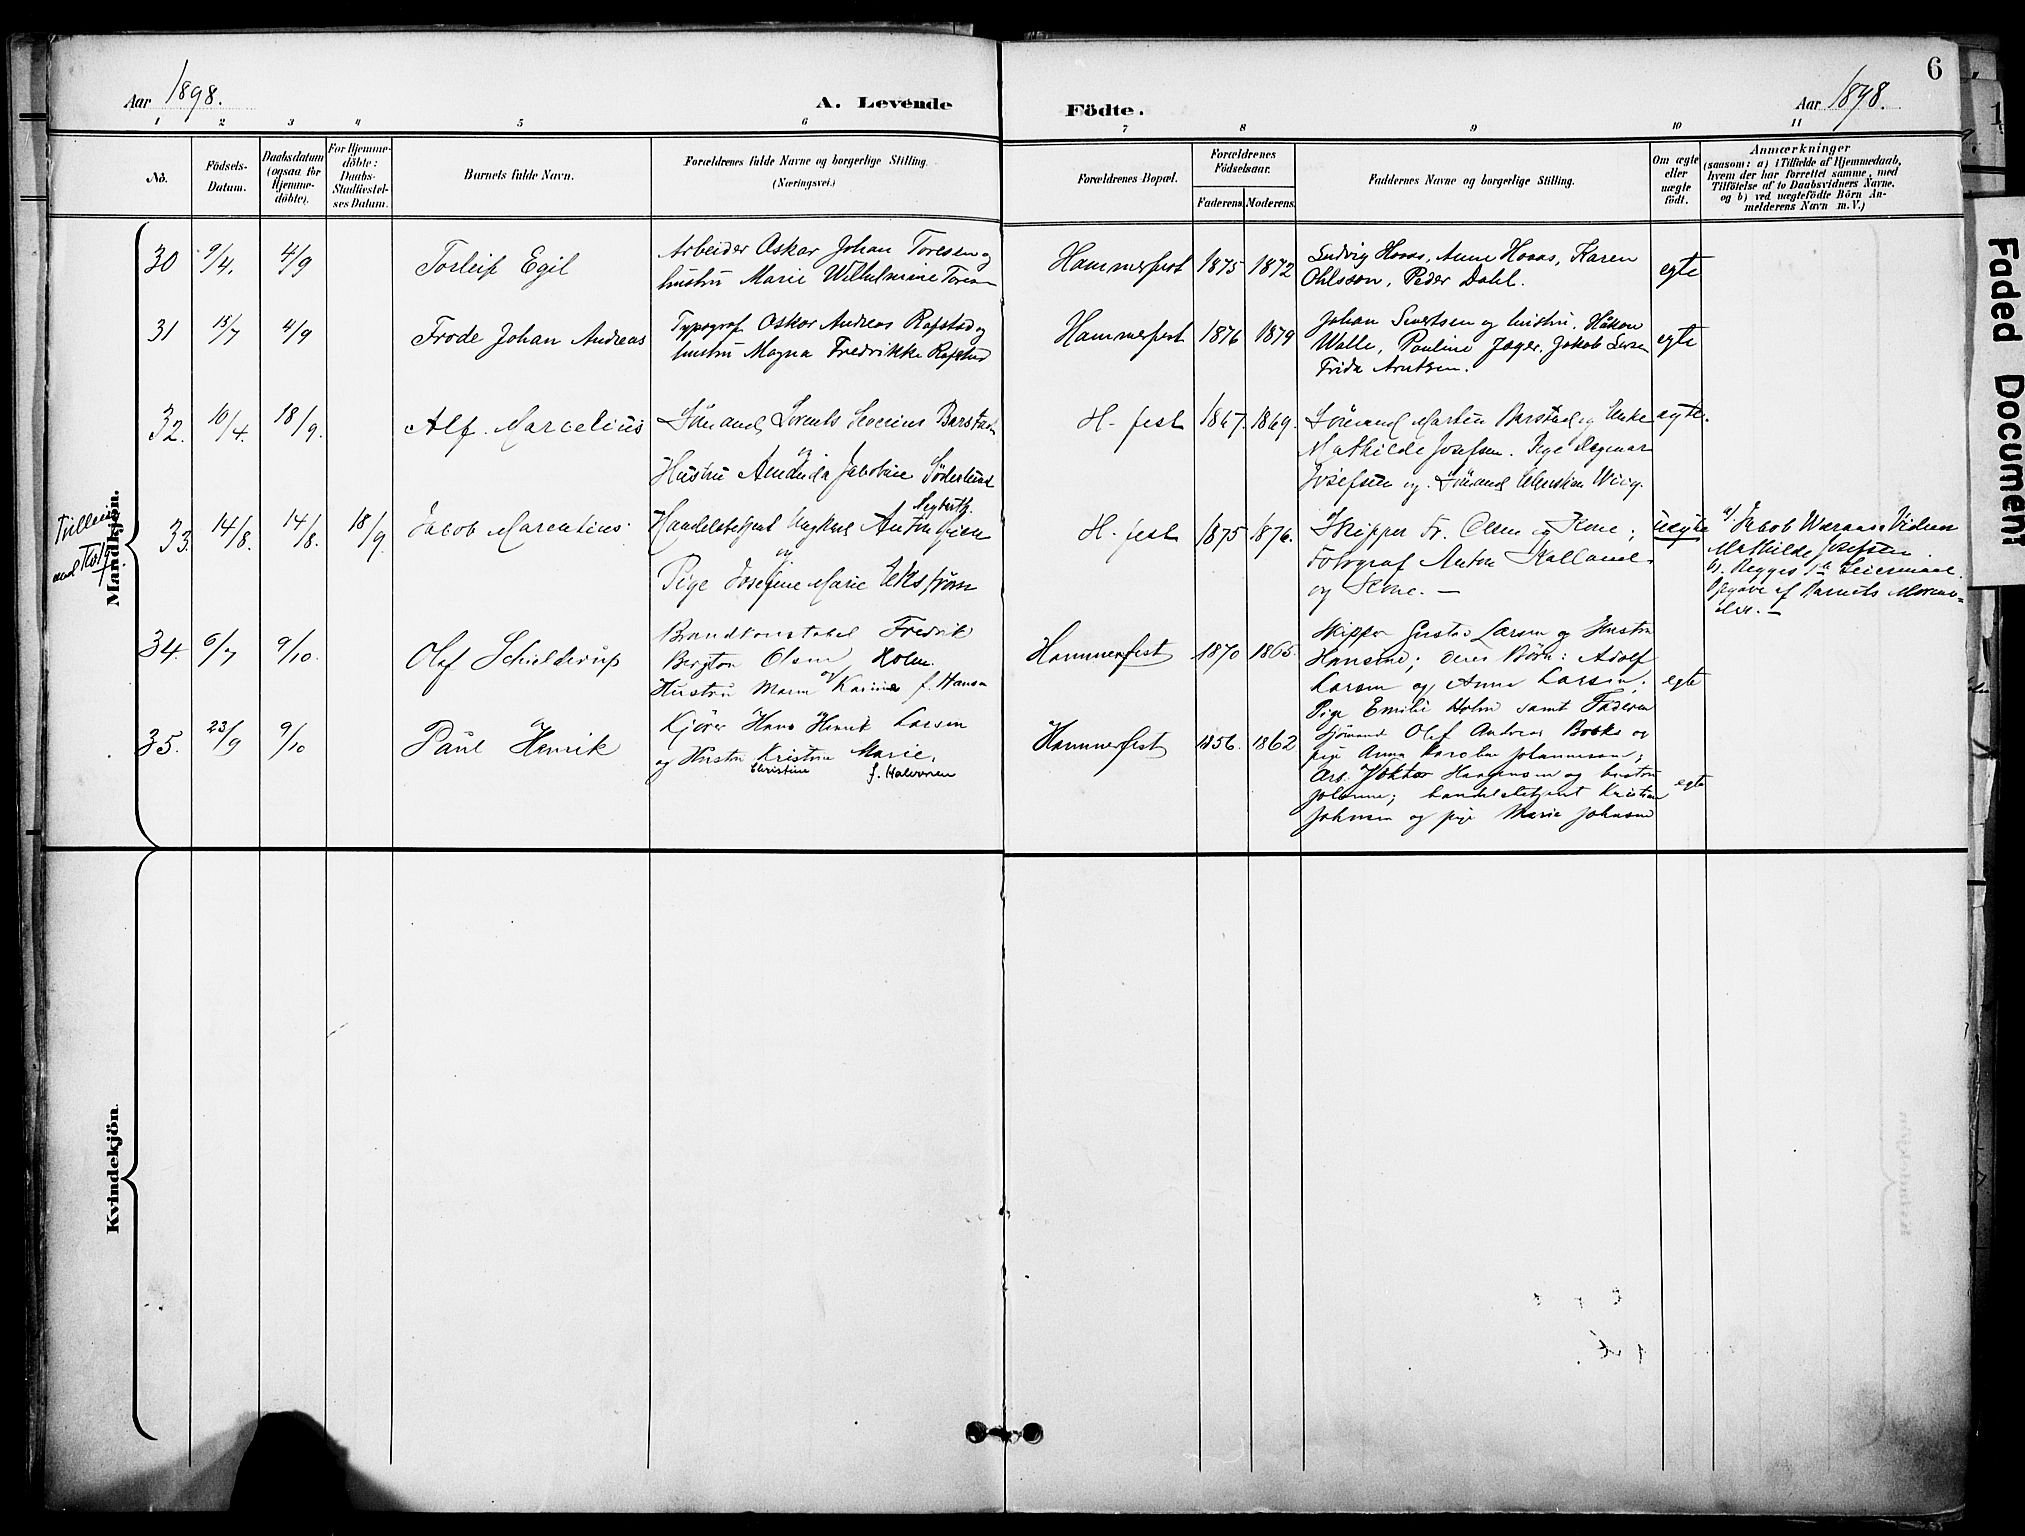 6
Aar 1898.
A. Levende
Födte.
Aar 1898.
1 2 3 4 5 6 7 8 9 10 11
No.
Födsels-
Datum.
Daabsdatum
(ogsaa for
Hjemme-
döbte).
For Hjemme-
döbte:
Daabs-
Stadfæstel-
ses Datum.
Barnets fulde Navn.
Forældrenes fulde Navne og borgerlige Stilling.
(Næringsvei.)
Forældrenes Bopæl.
Forældrenes
Födselsaar.
Faderens. Moderens.
Faddernes Navne og borgerlige Stilling.
Om ægte
eller
uægte
födt.
Anmærkninger
(saasom: a) i Tilfælde af Hjemmedaab,
hvem der har forrettet samme, med
Tilföielse af to Daabsvidners Navne,
og b) ved uægtefödte Börn An-
melderens Navn m. V.)
Mandkjön.
30 9/4. 4/9
Torleif Egil
Arbeider Oskar Johan Toresen og
hustru Marie Wilhelmine Toresen
Hammerfest 1875 1872
Ludvig Hovas, Anne Hovas, Karen
Ohlsson, Peder Dahl.
egte
31 18/7 4/9
Frode Johan Andreas
Typograf Oskar Andreas Rafstad og
hustru Magna Fredrikke Rafstad
Hammerfest 1876 1879
Johan Sivertsen og hustru, Håkon
Walle, Pauline Jæger, Jakob
Frida Arntsen.
egte
32. 10/4. 18/9.
Alf Marcelius
Sömand Lorents Severin Barstad
og
Hustru Amanda Jakobine Söderlund
H. fest 1867. 1869.
Sömand Martin Barstad og Enke
Mathilde Josefsen. Pige Dagmar
Josefsen og Sömand Wiig.
ægte.
33. 14/8. 14/8. 18/9.
Jacob Marentius
Handelsbetjent Ungkarl Anton
og
Pige Josefine Marie Ekström
H. fest 1875 1876.
Skipper Fr. Olsen og Kone;
Fotograf Anton Kalland
og Kone. —
uegte
a) Jakob
Mathilde Josefsen.
b. Begges 1ste Leiermaal.
Opgave af Barnets
34. 6/7 9/10.
Olaf Schielderup
Brandkonstabel Fredrik
Olsen Holm
og
Hustru Maren f. Hansen
Hammerfest 1870 1865.
Skipper Gustav Larsen og Hustru
Hansine; deres Börn: Adolf
Larsen og Anna Larsen;
Pige Emilie Holm samt Faderen
egte
35. 23/9 9/10
Paul Henrik
Kjörer Hans Henrik Larsen
og Hustru Kristine Marie,
Christine f. Halvorsen
Hammerfest 1856. 1862
Sjömand Olaf Andreas og
pige Anna Karoline Johannessen;
Arb. Haagensen og hustru
handelsbetjent Kristian
Johnsen og pige Marie Johnsen
egte
Kvindekjön.
Faded Document